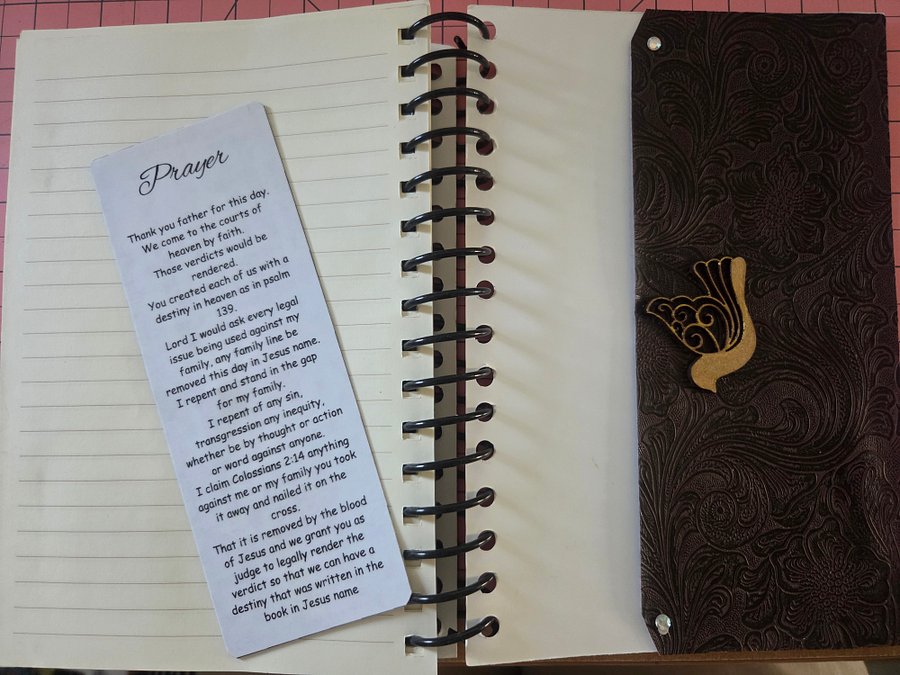 Prayer
Thank you father for this day.
We come to the courts of
heaven by faith.
Those verdicts would be
rendered.
You created each of us with a
destiny in heaven as in psalm
139.
Lord I would ask every legal
issue being used against my
family, any family line be
removed this day in Jesus name.
I repent and stand in the gap
for my family.
I repent of any sin,
transgression any inequity,
whether be by thought or action
or word against anyone.
I claim Colossians 2:14 anything
against me or my family you took
it away and nailed it on the
cross.
That it is removed by the blood
of Jesus and we grant you as
judge to legally render the
verdict so that we can have a
destiny that was written in the
book in Jesus name